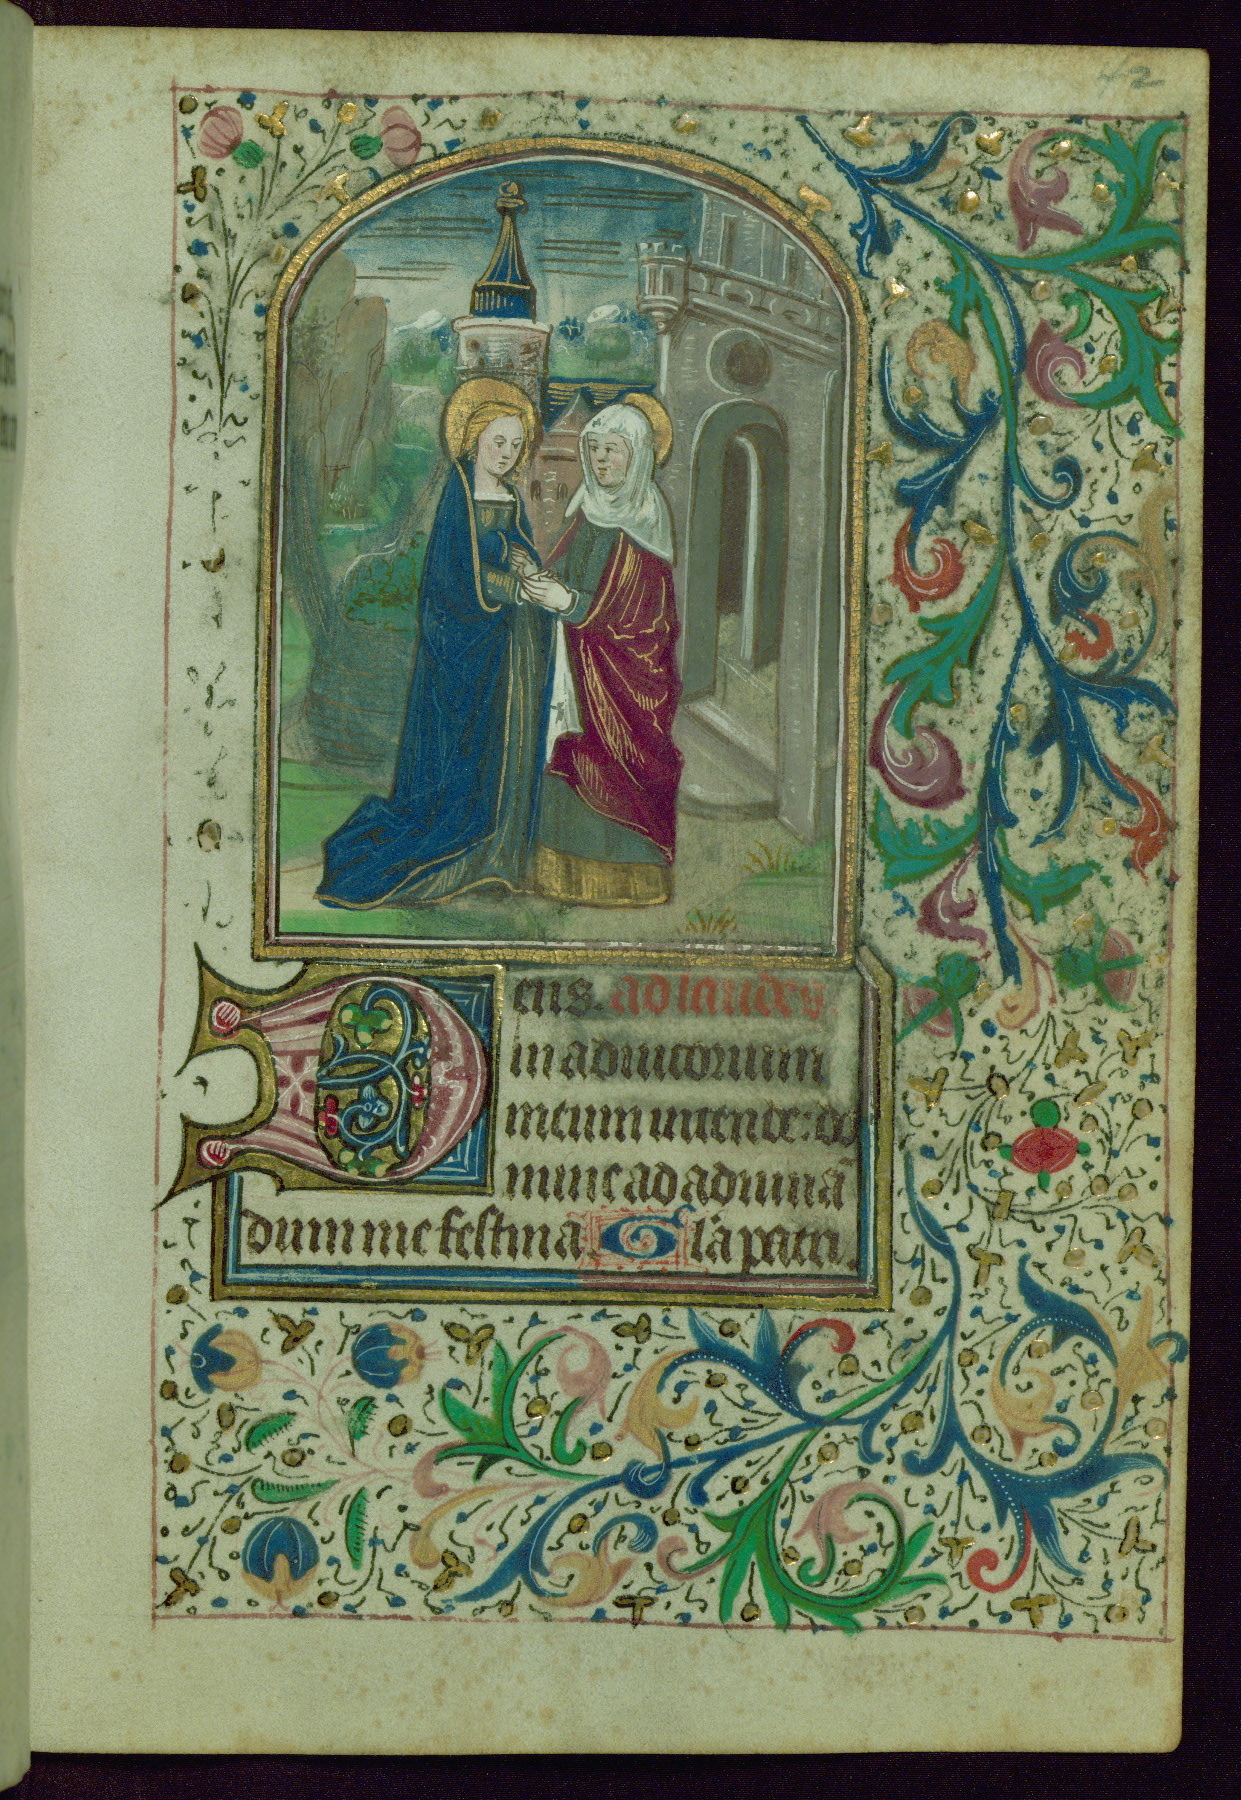 42
Deus. ad laudes
in adiutorium
meum intende: do
mine ad adiuuā
dum me festina Glā patri.